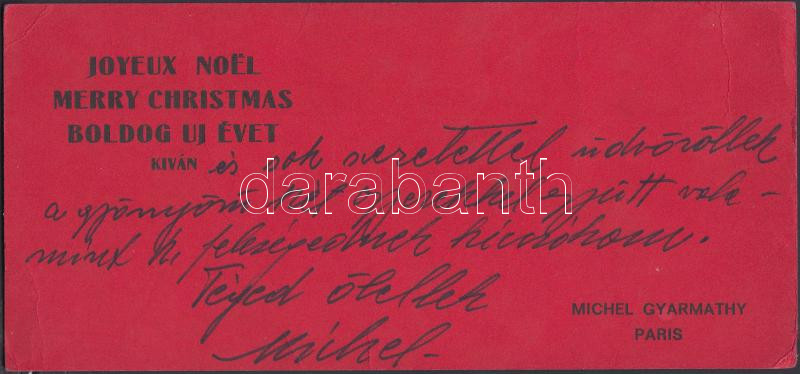 JOYEUX NOËL
MERRY CHRISTMAS
BOLDOG UJ ÉVET
KIVÁN és sok szeretettel üdvözöllek
a gyönyörű két gyerekkel együtt vala-
mint k. feleségednek
Téged ölellek
Michel-
MICHEL GYARMATHY
PARIS
darabanth